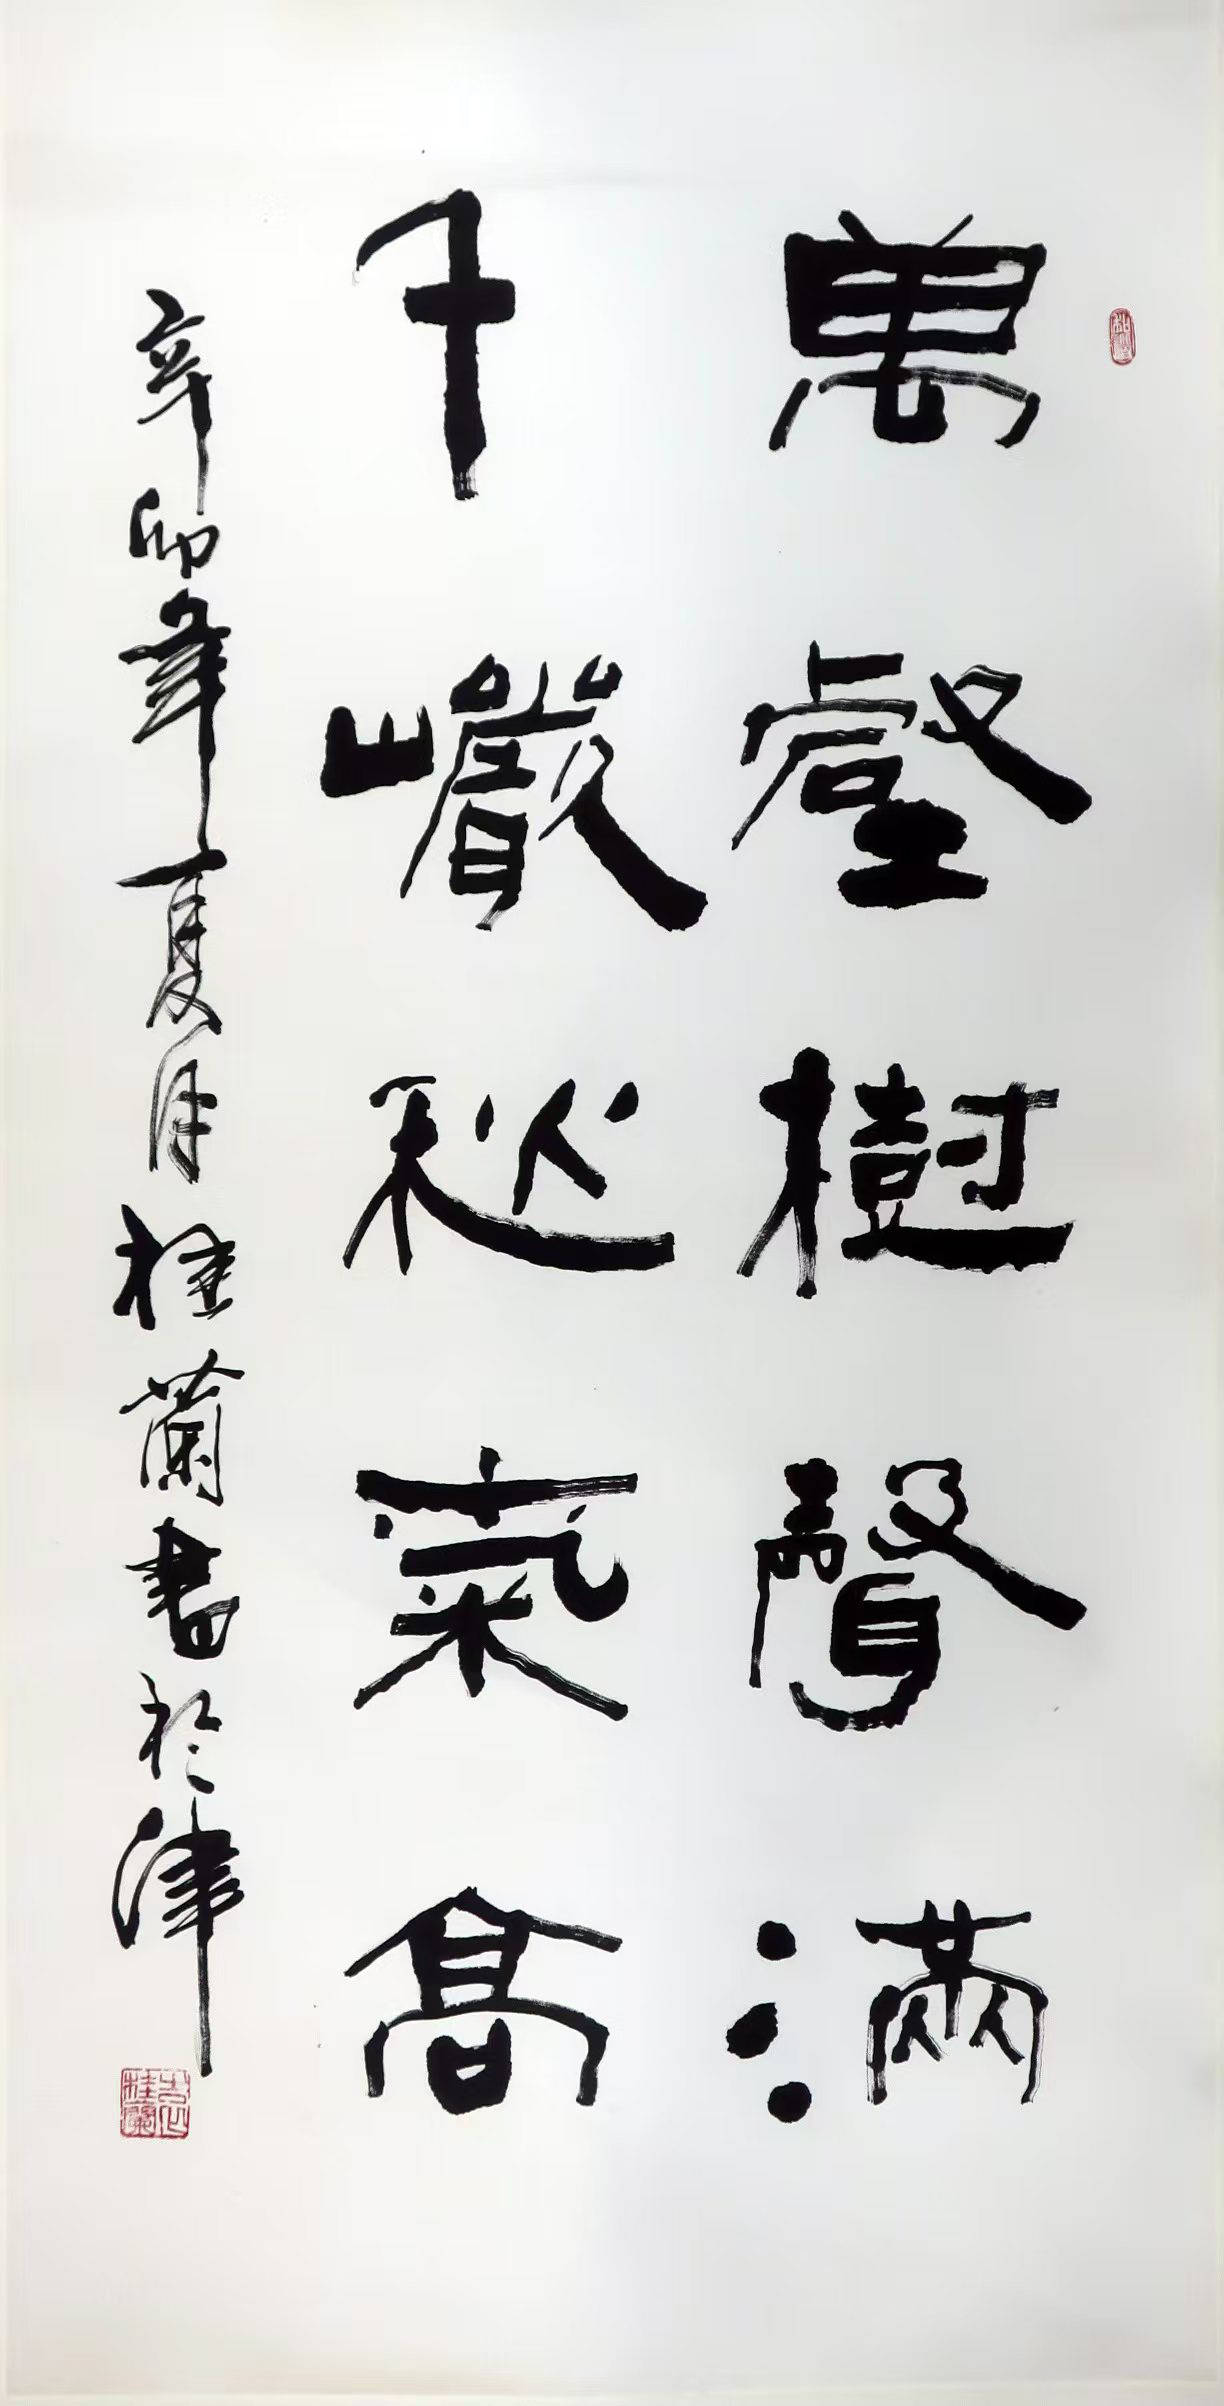 萬壑樹聲滿
千巖秋氣高
辛卯年夏月桂蘭書於津